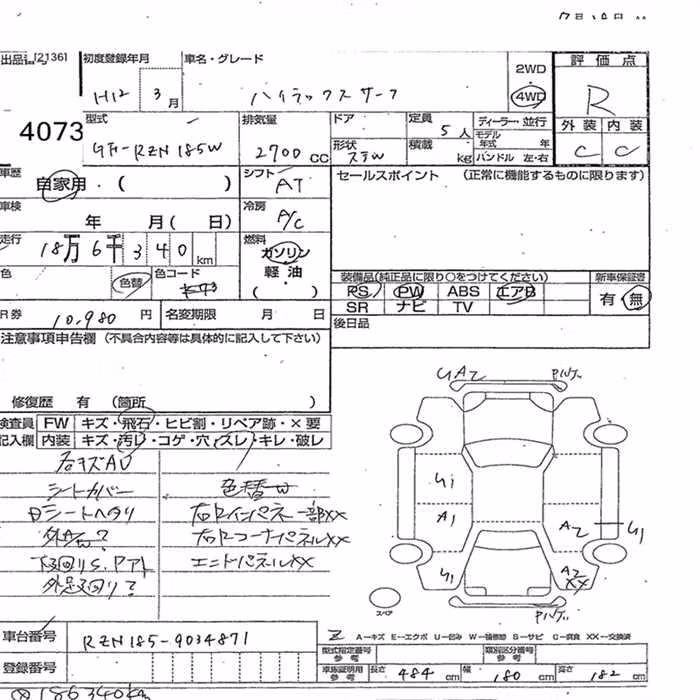 出品 (2136)
初度登録年月 車名・グレード 評価点
H12 3月 ハイラックスサーフ 2WD 4WD R
外装 内装
4073 型式 排気量 ドア 定員 ディーラー・並行
GF-RZN185W 2700 CC 形状 ステW 5人 モデル年式 年 C C
積載 kg ハンドル 左・右
車歴 自家用・( ) シフト AT セールスポイント (正常に機能するものに限ります)
車検 年 月( 日) 冷房 A/C
走行 18万6千340km 燃料 ガソリン
軽油
色 色替 色コード ( ) 装備品(純正品に限り○をつけてください) 新車保証書
PS PW ABS エアB 有・無
SR ナビ TV
R券 10,980 円 名変期限 月 日 後日品
注意事項申告欄 (不具合内容等は具体的に記入して下さい)
修復歴 有 (箇所 )
検査員 FW キズ・飛石・ヒビ割・リペア跡・×要
記入欄 内装 キズ・汚レ・コゲ・穴・スレ・キレ・破レ
シートカバー 色替W
シートヘタリ 右リインパネ一部XX
右リコーナパネルXX
下回りS. エンドパネルXX
外足回り?
UA2
U1
A1
A2 U1
U1 A2 XX
スペア
A−キズ E−エクボ U−凹み W−補修跡 S−サビ C−腐食 XX−交換済
車台番号 RZN185-9034871
型式指定番号 参考 類別区分番号 参考
登録番号 車庫証明用 参考 長さ 484 cm 幅 180 cm 高さ 182 cm
186340km